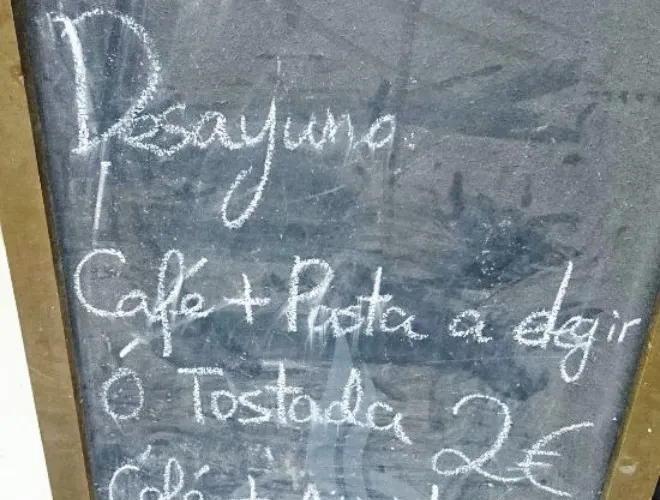 Desayuno.
Café + Pasta a elegir
Ó Tostada 2€
Café +